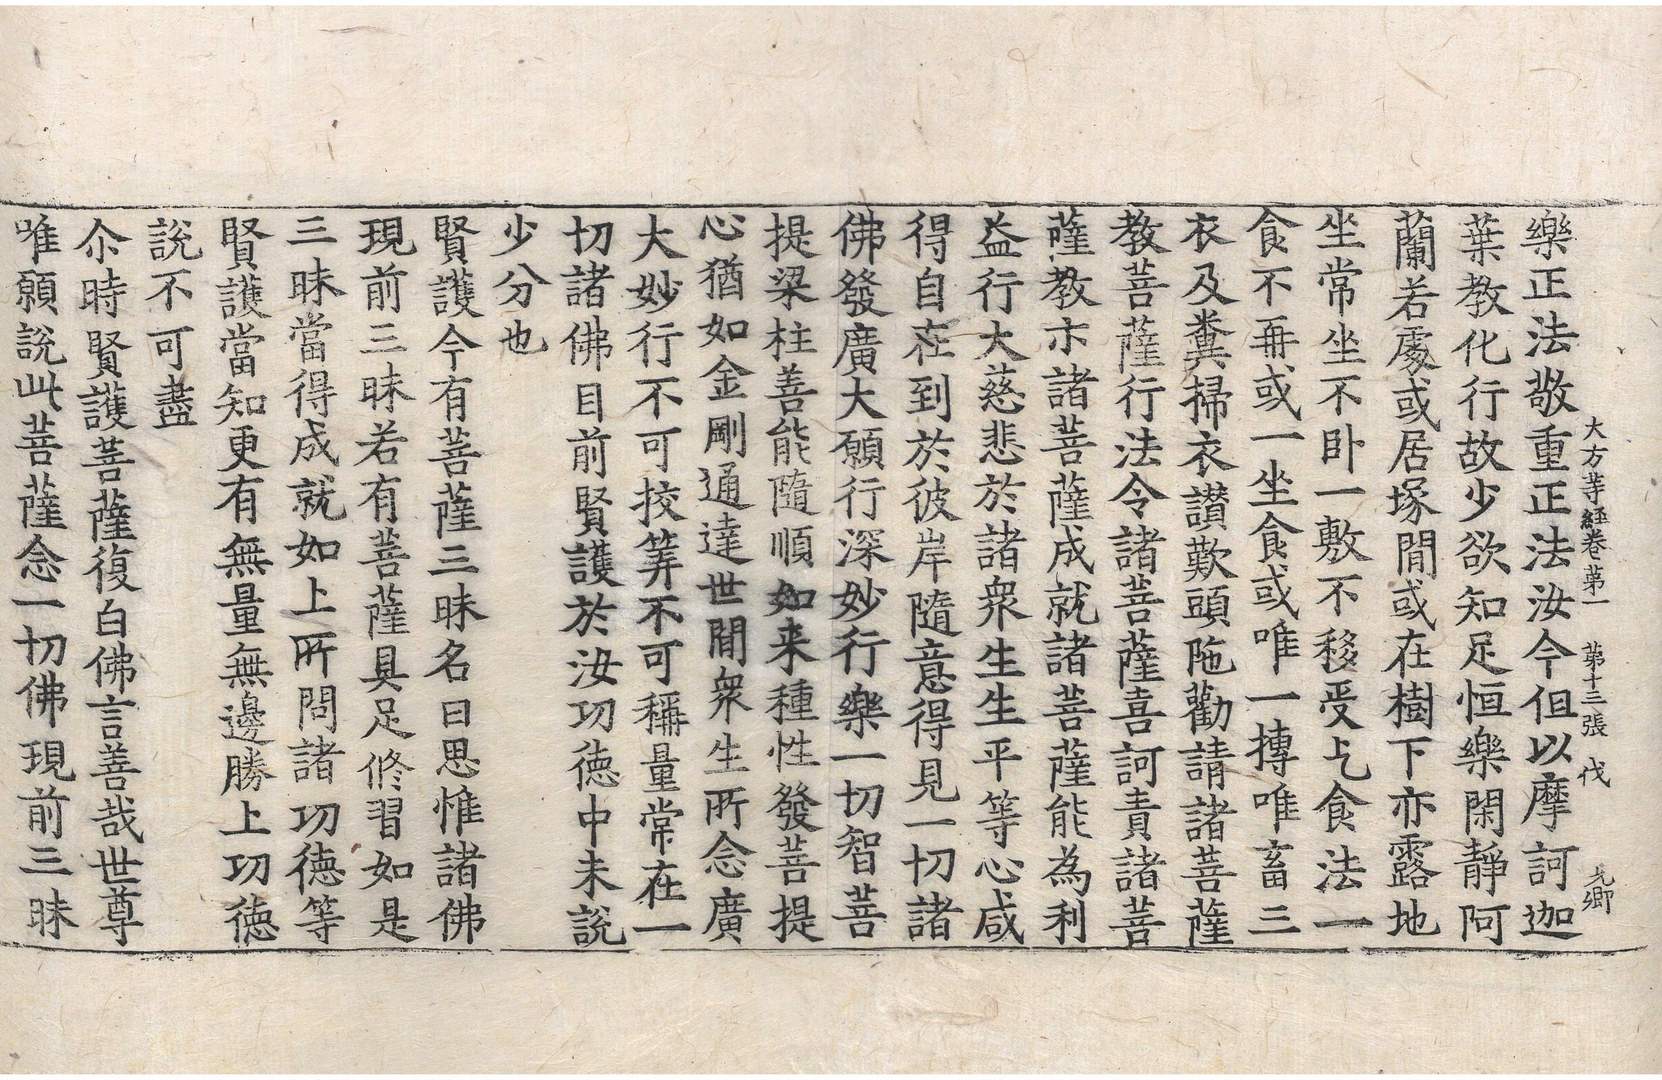 大方等經卷第一 第十三張 伐 光卿
樂正法敬重正法汝今但以摩訶迦
葉教化行故少欲知足恒樂閑靜阿
蘭若處或居塚間或在樹下亦露地
坐常坐不卧一敷不移受乞食法一
食不再或一坐食或唯一摶唯畜三
衣及糞掃衣讃歎頭陁勸請諸菩薩
教菩薩行法令諸菩薩喜訶責諸菩
薩教示諸菩薩成就諸菩薩能為利
益行大慈悲於諸衆生生平等心咸
得自在到於彼岸隨意得見一切諸
佛發廣大願行深妙行樂一切智菩
提梁柱善能隨順如来種性發菩提
心猶如金剛通達世間衆生所念廣
大妙行不可挍筭不可稱量常在一
切諸佛目前賢護於汝功德中未說
少分也
賢護今有菩薩三昧名曰思惟諸佛
現前三昧若有菩薩具足修習如是
三昧當得成就如上所問諸功德等
賢護當知更有無量無邊勝上功德
說不可盡
尒時賢護菩薩復白佛言善哉世尊
唯願說此菩薩念一切佛現前三昧